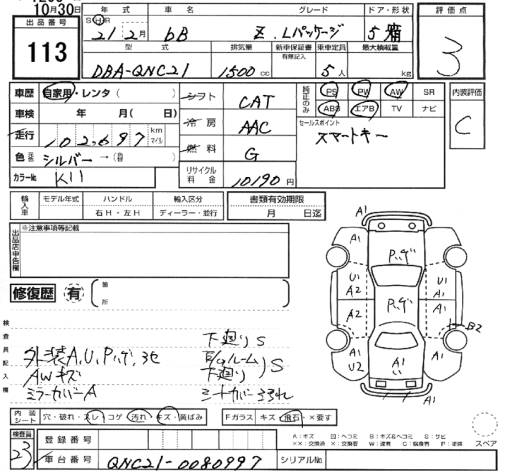 10月30日
出品番号
113
年式 車名 グレード ドア・形状
21年2月 bB Z Lパッケージ 5 箱
型式 排気量 新車保証書 乗車定員 最大積載量
有無記入
DBA-QNC21 1500cc 5人 kg
評価点
3
車歴 自家用・レンタ( )
車検 年 月( 日)
走行 102,697 km マイル
色 シルバー →
カラーNo. K11
シフト CAT
冷房 AAC
燃料 G
リサイクル料金 10190円
純正のみ PS PW AW SR
ABS エアB TV ナビ
セールスポイント
スマートキー
内装評価
C
輸入車 モデル年式 ハンドル 輸入区分
右H・左H ディーラー・並行
書類有効期限
月 日迄
出品店申告欄
※注意事項等記載
修復歴 有
箇所
検査員記入欄
外装A,U,Pハゲ,
AWキズ
ミラーカバーA
下廻りS
下廻り S
シートカバー
A1 A1
Pハゲ
U1 A1
A2 A1
Pハゲ
A1 A1
U2 A1
B2
A1
内装シート 穴・破れ・スレ・コゲ 汚れ キズ・黄ばみ
Fガラス キズ 飛石 ×要す
A:キズ U:ヘコミ B:キズ&ヘコミ S:サビ
スペア
検査員 23
登録番号
車台番号 QNC21-0080997 シリアルNo.